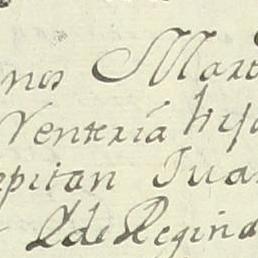 nos Mart
Ventería hijo
apitan Jua
Rde Regina